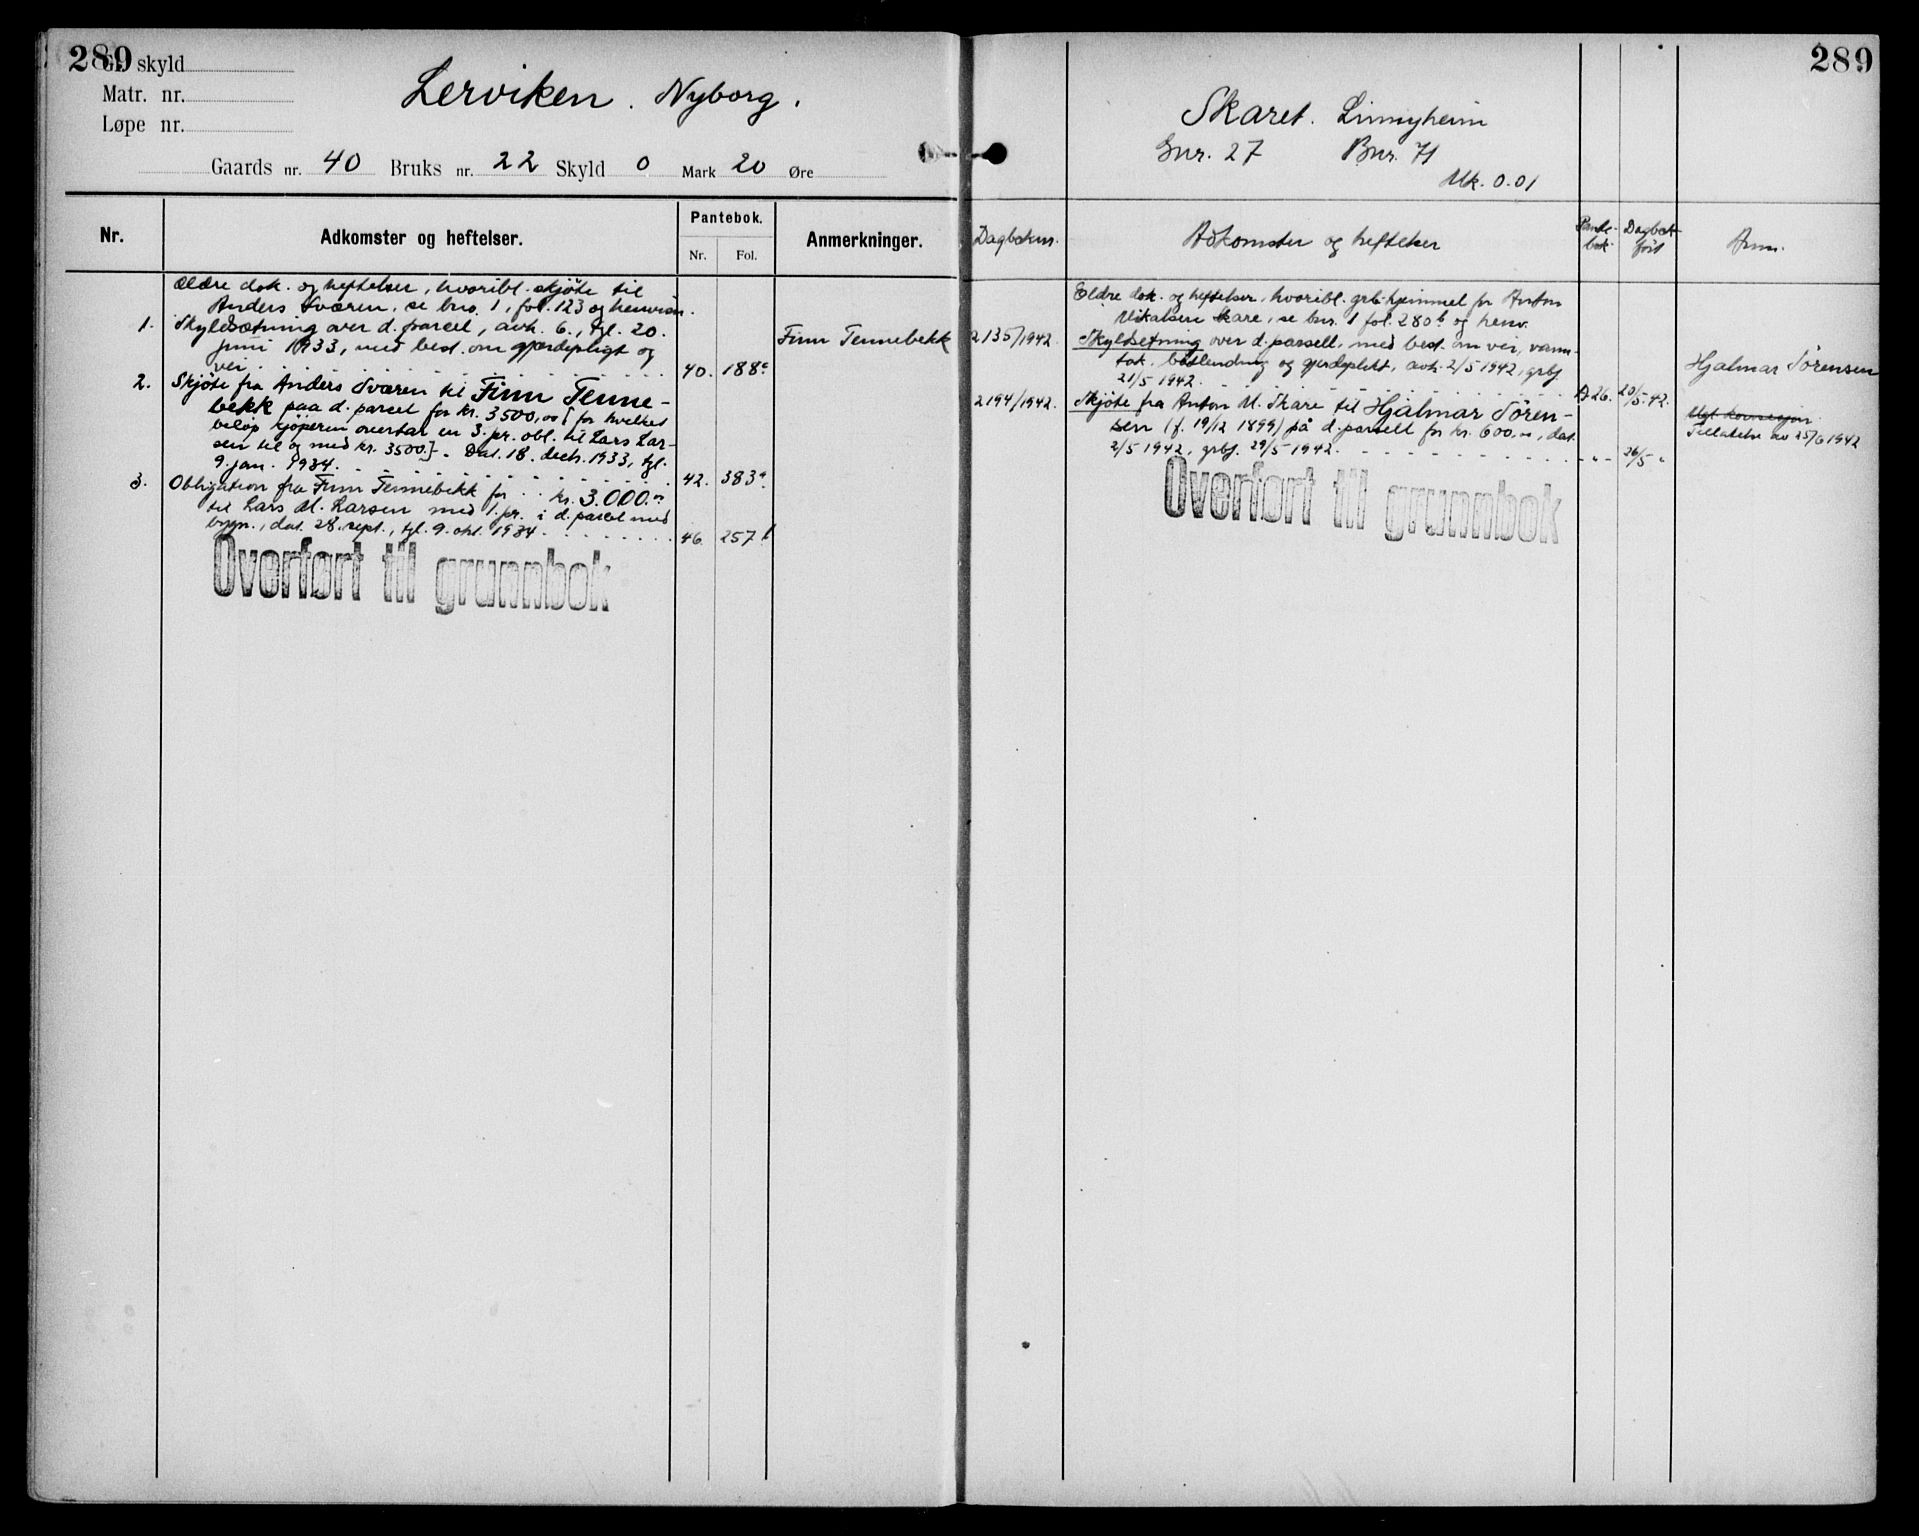 289
G. skyld
Matr. nr.
Løpe nr.
Lerviken. Nyborg.
Gaards nr. 40 Bruks nr. 22 Skyld 0 Mark 20 Øre
Nr.
Adkomster og heftelser.
Pantebok.
Nr. Fol.
Anmerkninger.
Ældre dok. og heftelser, hvoribl. skjöte til
Anders Sværen, se bno. 1, fol. 123 og henvisn.
1. Skyldsætning over d. parcel, avh. 6., tgl. 20.
juni 1933, med best. om gjærdepligt og
vei . . . 40. 188
Finn Tennebekk
2. Skjöte fra Anders Sværen til Finn Tenne-
bekk paa d. parcel for kr. 3500,00 [for hvilket
belöp kjöperen overtar en 3. pr. obl. til Lars Lar-
sen til og med kr. 3500.]. Dat. 18. decb. 1933, tgl.
9. jan. 1934. . . . 42. 383
3. Obligation fra Finn Tennebekk for . . kr. 3.000.
til Lars M. Larsen med 1. pr. i d. parcel med
bygn., dat. 28. sept., tgl. 9. okt. 1934. . . . 46. 257
Overført til grunnbok
289
Skaret.
Gnr. 27 Bnr. 71
Mk. 0.01
Dagboknr.
Adkomster og heftelser
Pante-
bok.
Dagbok-
ført
Anm.
Eldre dok. og heftelser, hvoribl. grb. hjemmel for Anton
Mikalsen Skare, se bnr. 1 fol. 280 b og henv.
2135/1942. Skyldsetning over d. parsell, med best. om vei, vann-
tak, båtlending og gjerdeplikt, avh. 2/5 1942, grbf.
21/5 1942. . . . A 26. 20/5-42.
Hjalmar Sörensen
2194/1942. Skjöte fra Anton M. Skare til Hjalmar Sören-
sen (f. 19/12 1899) på d. parsell for kr. 600,00, dat.
2/5 1942, grbf. 29/5 1942. . . . " - 26/5 "
Tillatelse av 25/6 1942
Overført til grunnbok